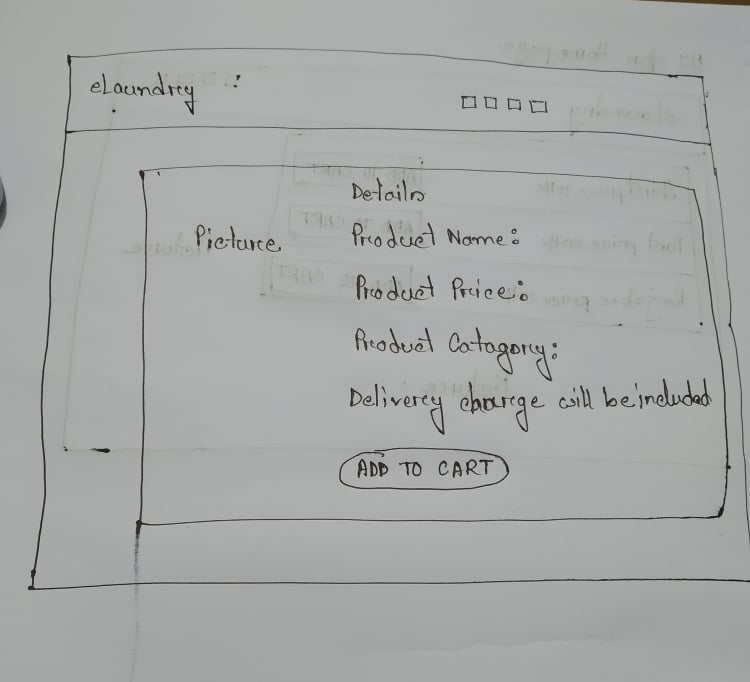 eLaundry
Details
Picture
Product Name:
Product Price:
Product Catagory:
Delivery charge will be included
ADD TO CART